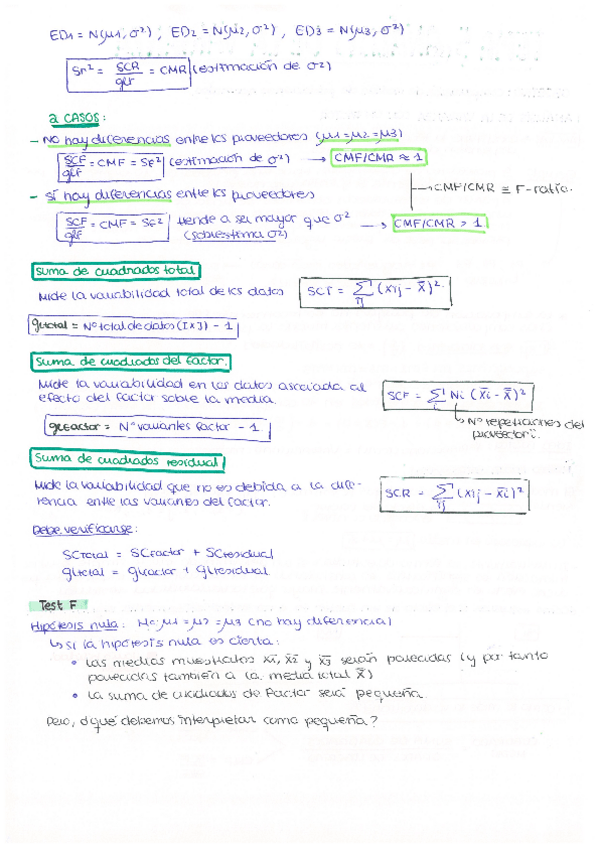 ED1 = N(μ1, σ²) , ED2 = N(μ2, σ²) , ED3 = N(μ3, σ²)
Sr² = SCR/glr = CMR (estimación de σ²)
2 CASOS:
- NO hay diferencias entre los proveedores (μ1 = μ2 = μ3)
SCF/glf = CMF = SF² (estimación de σ²) → CMF/CMR ≈ 1
→ CMF/CMR ≡ F-ratio.
- SÍ hay diferencias entre los proveedores
SCF/glf = CMF = SF² tiende a ser mayor que σ² → CMF/CMR > 1
(sobrestima σ²)
Suma de cuadrados total
Mide la variabilidad total de los datos SCT = Σij (xij - x̄)².
gltotal = Nº total de datos (I x J) - 1
Suma de cuadrados del factor.
Mide la variabilidad en los datos asociada al
efecto del factor sobre la media. SCF = Σi Ni (x̄i - x̄)²
↳ Nº repeticiones del
proveedor i.
glfactor = Nº variantes factor - 1
Suma de cuadrados residual
Mide la variabilidad que no es debida a la dife-
rencia entre las variantes del factor. SCR = Σij (xij - x̄i)²
Debe verificarse:
SCTotal = SCFactor + SCresidual
gltotal = glfactor + glresidual.
Test F
Hipótesis nula: H0: μ1 = μ2 = μ3 (no hay diferencia)
↳ Si la hipótesis nula es cierta:
• Las medias muestrales x̄1, x̄2 y x̄3 serán parecidas (y por tanto
parecidas también a la media total x̄)
• La suma de cuadrados de Factor será pequeña.
Pero, ¿qué debemos interpretar como pequeña?